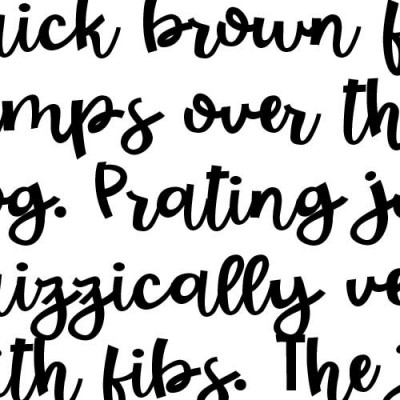 uick brown f
umps over th
og. Prating j
uizzically ve
ith fibs. The